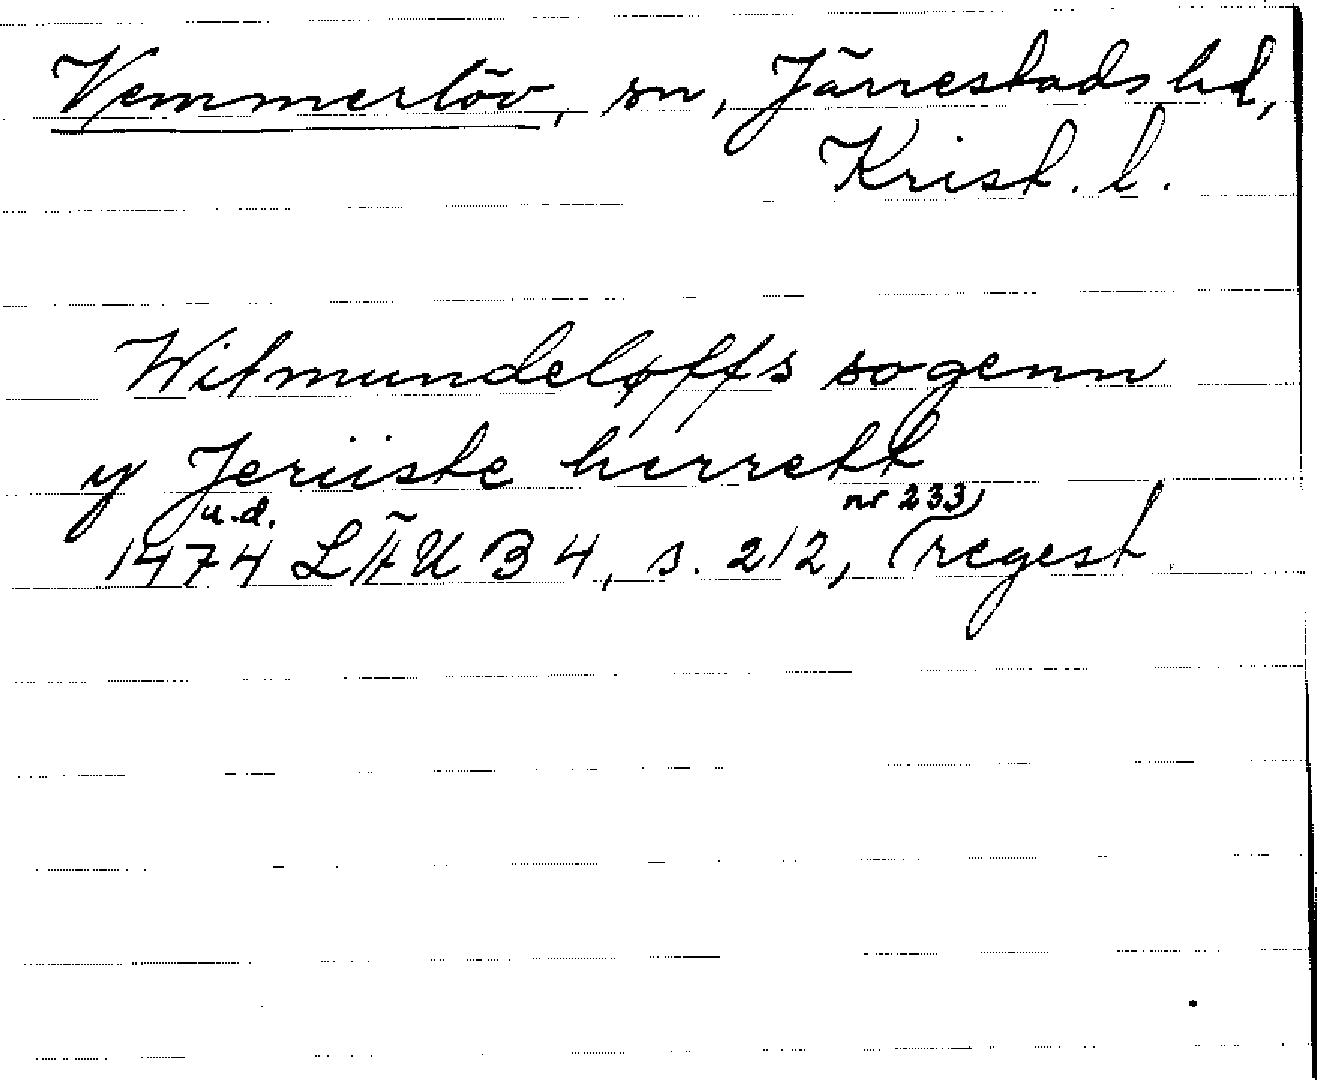 Vemmerlöv, sn, Järrestads hd,
Krist. l.
Witmundeløffs sogenn
y Jeriiste herrett
u.d. nr 233)
1474 LÄUB 4, s. 212, (regest